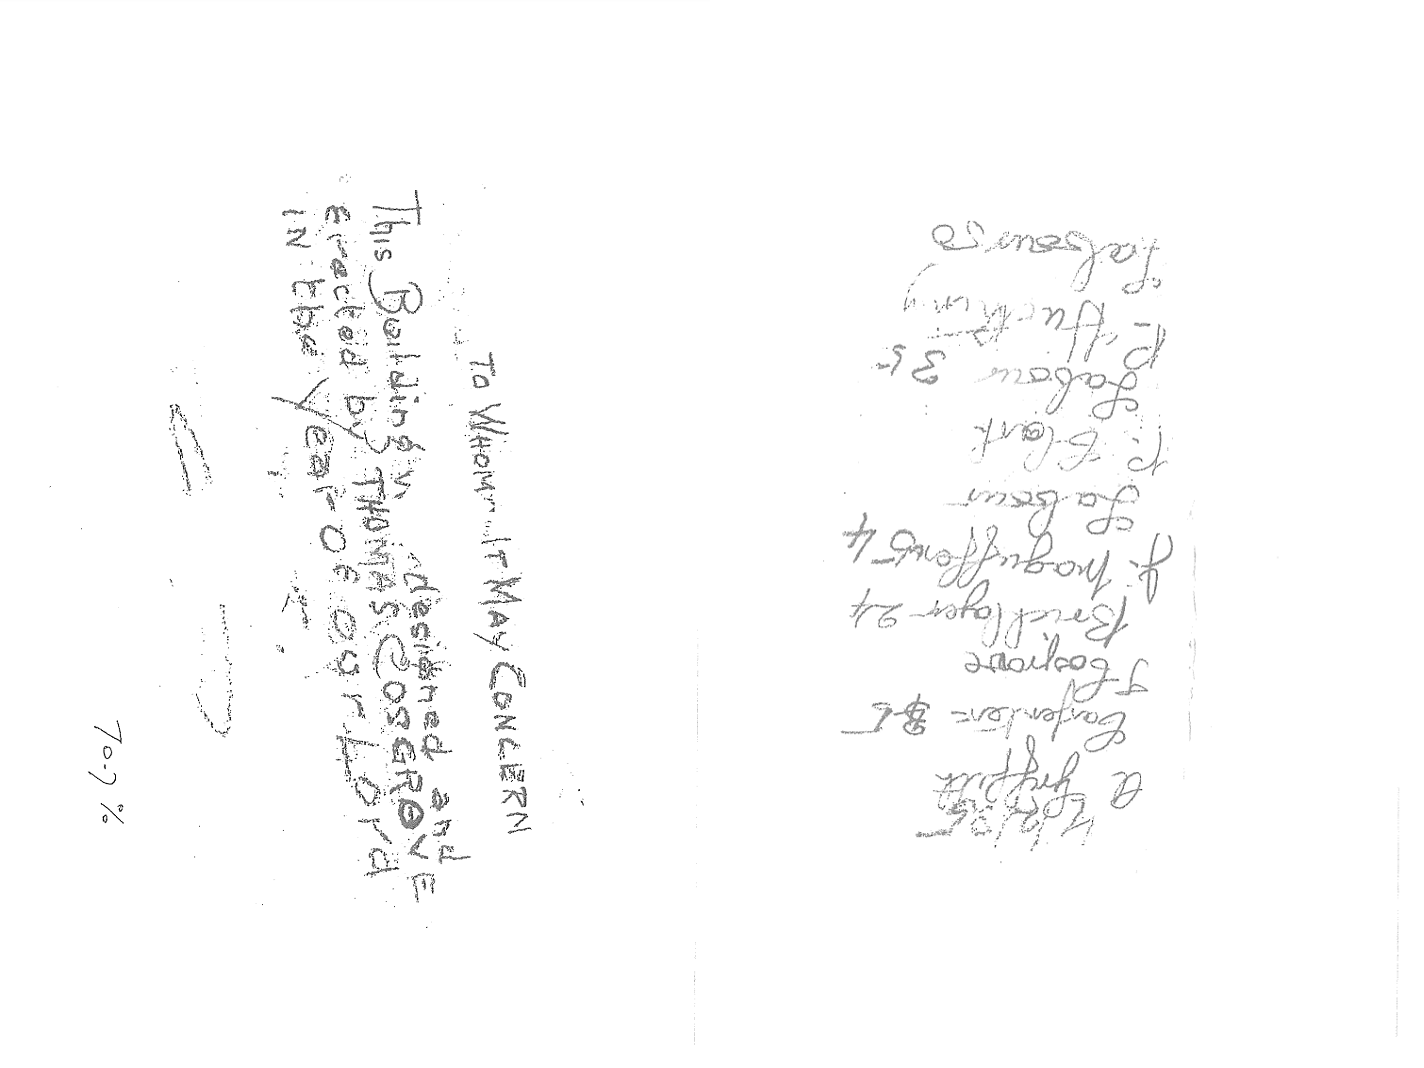 To WHOM IT MAY CONCERN
This Building designed and
Erected by THOMAS COSGROVE
IN the year oF our Lord
70.7%
A Griffith
Carpenter = 35
T Cosgrove
Bricklayer 24
J. Maguffon 54
Labour
P. Clark
Labour 35
P.
Labour 50